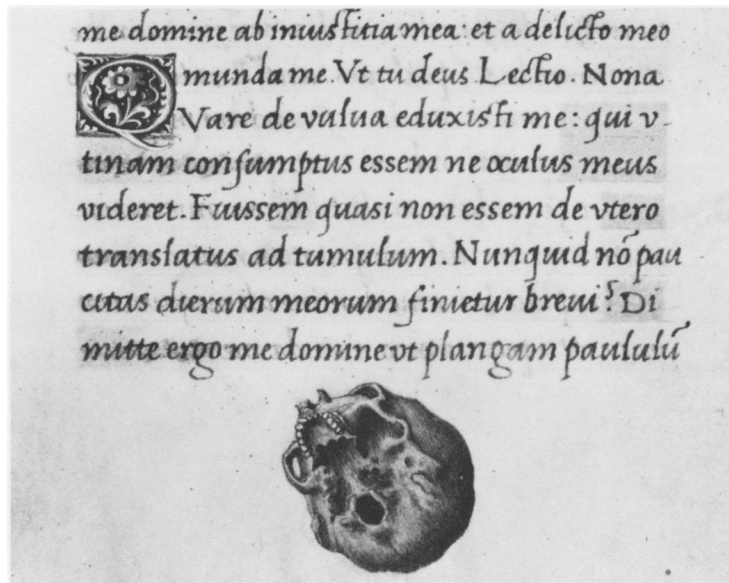 me domine ab iniustitia mea: et a delicto meo
munda me. Vt tu deus Lectio. Nona
QVare de vulua eduxisti me: qui v-
tinam consumptus essem ne oculus meus
videret. Fuissem quasi non essem de vtero
translatus ad tumulum. Nunquid nō pau
citas dierum meorum finietur breui? Di
mitte ergo me domine vt plangam paululū